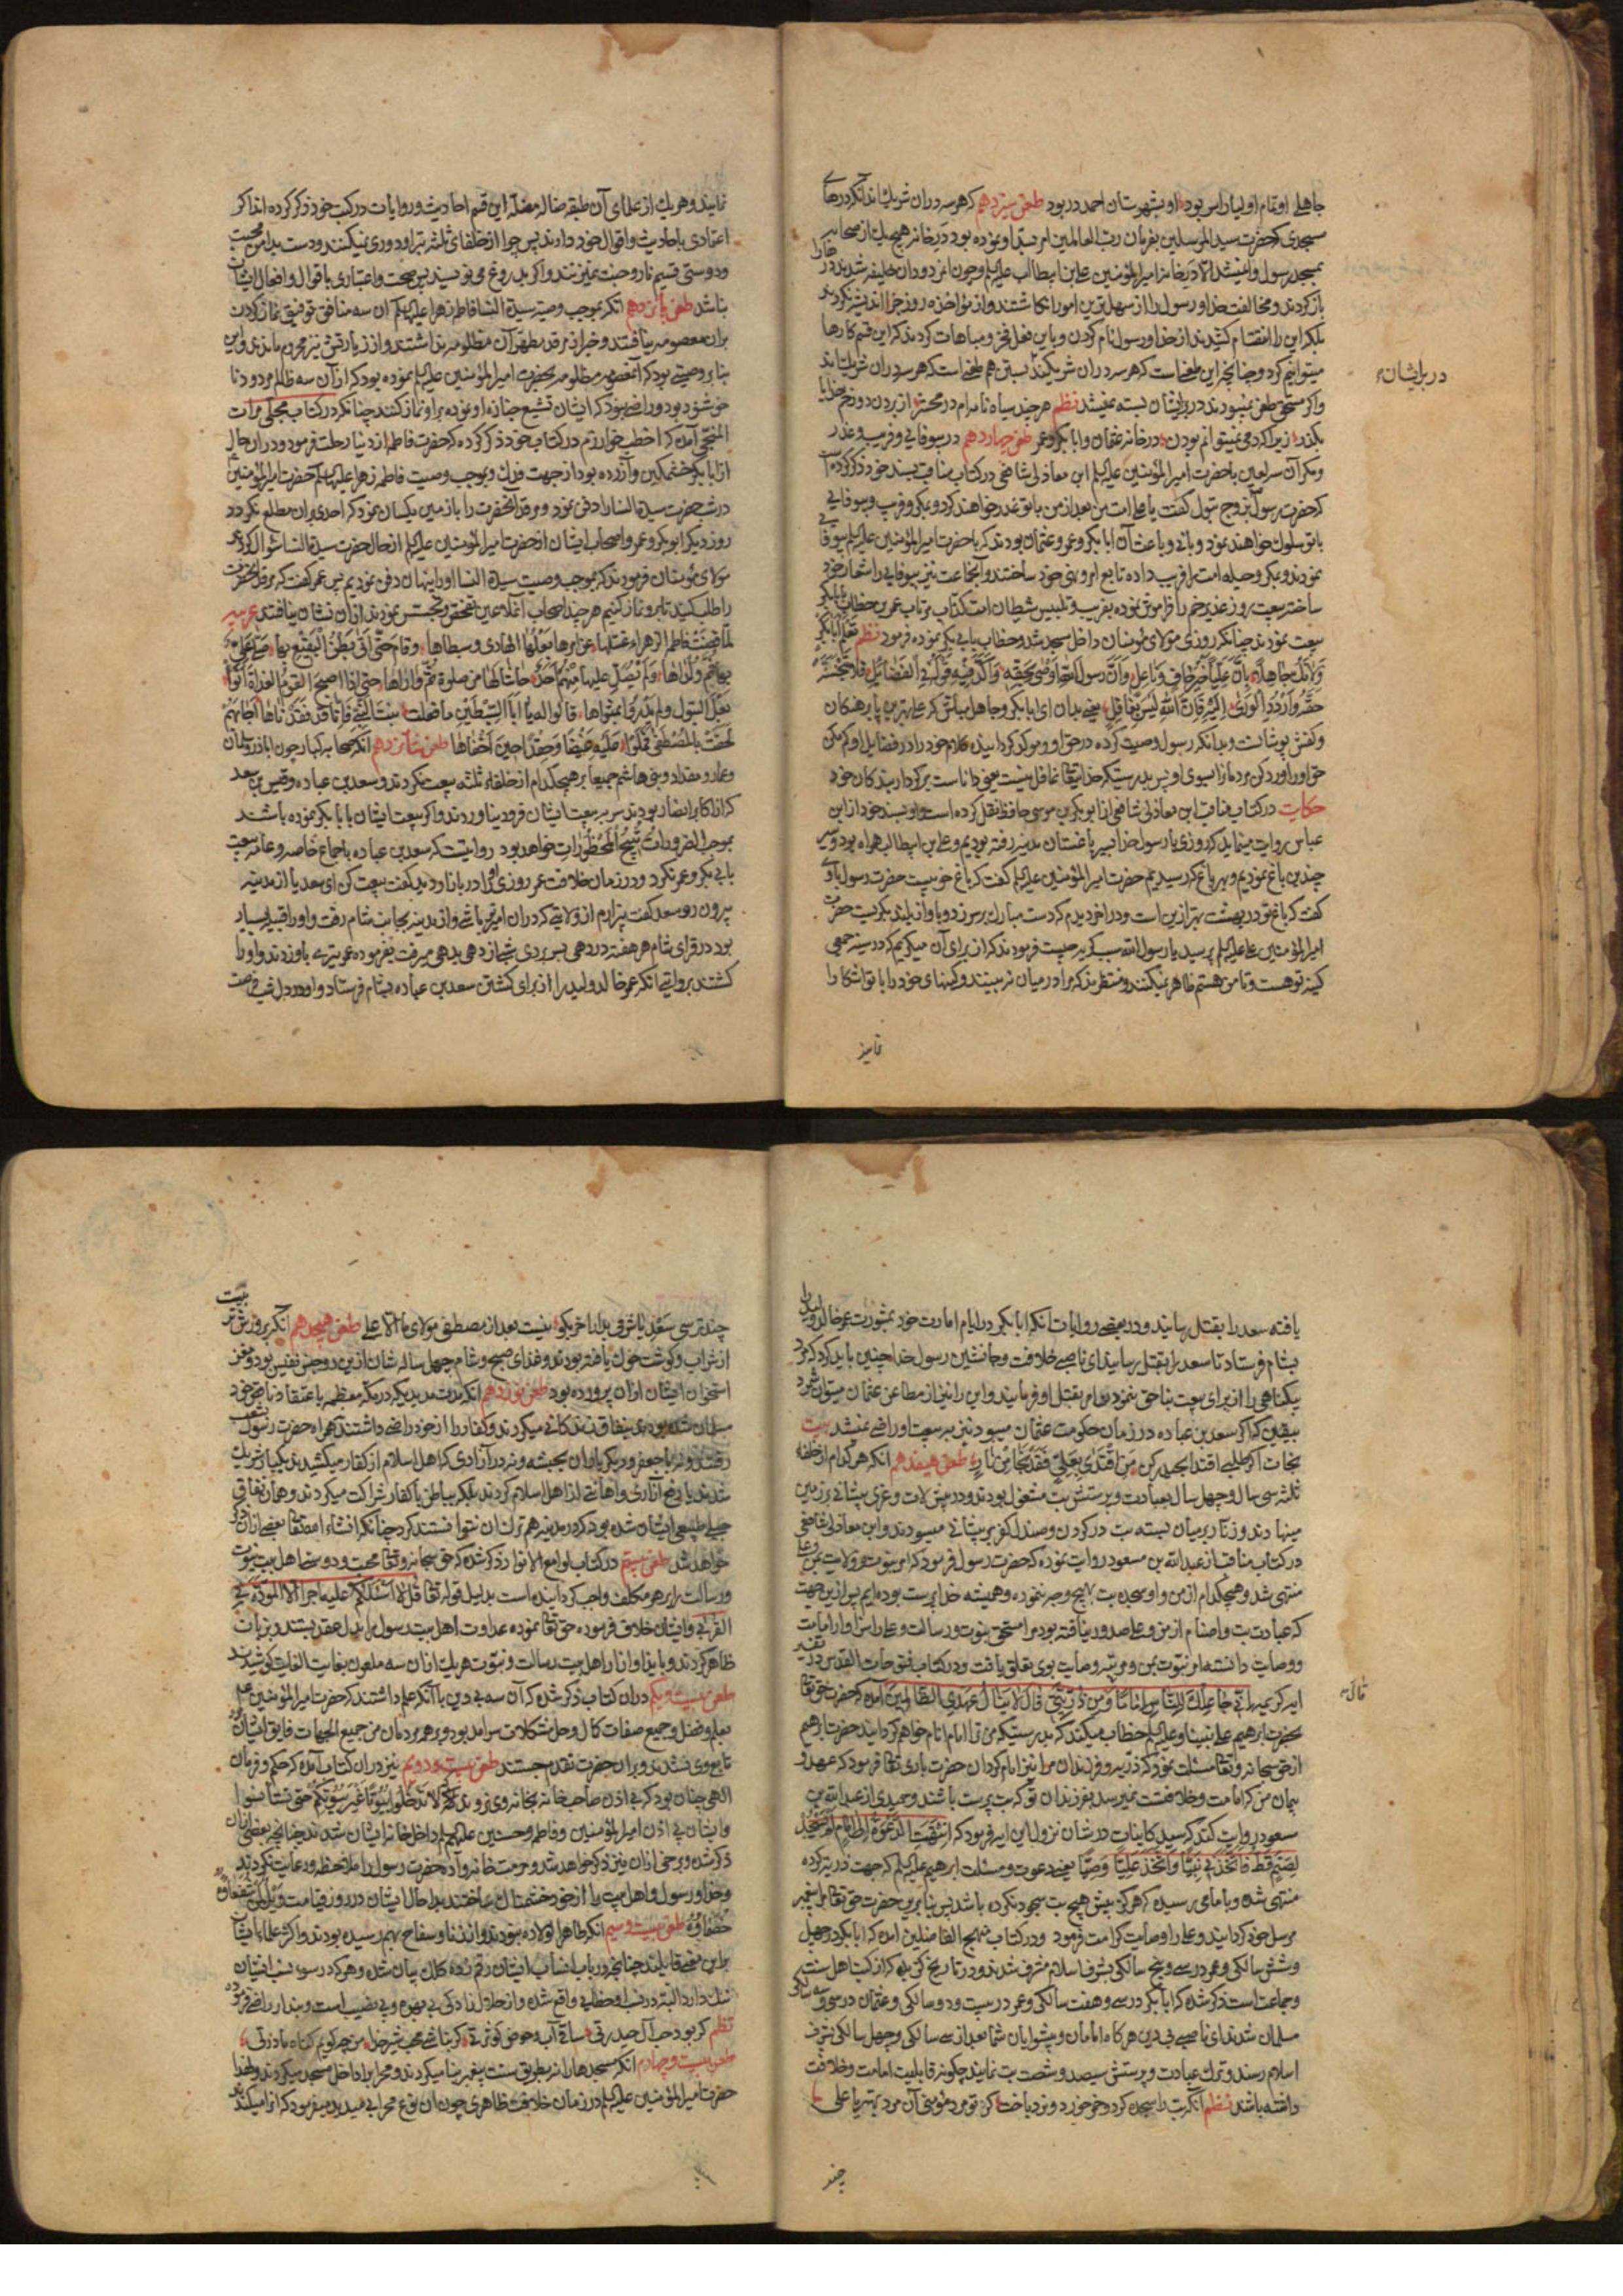 جاهلے اوتمام اولیا راس بود او بشهرستان احمد در بود طعن سیزدهم که هر سه دران شریک اند آنکه درهای
مسجدی که حضرت سید المرسلین بفرمان رب العالمین امر بسد او نموده بود در خانه هیچ یک از صحابه
بمسجد رسول وا نمیشد الا در خانه امیر المؤمنین علی بن ابیطالب علیه السلم و چون این دودان خلیفه شدند در خانها را
باز کردند و مخالفت خدا و رسول را از سهل ترین امور انکاشتند و از مؤاخذه روز جزا اندیشه نکردند
بلکه این را انتقام کشیدند از خدا و رسول نام کردن و باین فعل فخر و مباهات کردند که این قسم کارها
میتوانیم کرد و چنانچه این طعنیاست که هر سه دران شریکند بستن هم طعنی است که هر سه دران شریک اند
در برایشان
و اکر مستحق طعن نمیبودند در برایشان بسته نمیشد نظم هر چند سیاه نامه ام در محشر از بردن دوزخم خدایا
بکذر زیرا که دمی نمیتوانم بودن در خانه عثمان و ابابکر و عمر طعن چهاردهم در بیوفایی و فریب و غدر
و مکر آن سه لعین با حضرت امیر المؤمنین علیه السلم ابن مغازلی شافعی در کتاب مناقب بسند خود ذکر کرده است
که حضرت رسول بزوج بتول کفت یا علی امت من بعد از من با تو غدر خواهند کرد و بمکر و فریب و بیوفایی
با تو سلوک خواهند نمود و بانی و باعث آن ابابکر و عمر و عثمان بودند که با حضرت امیر المؤمنین علیه السلم بیوفایی
نمودند و بمکر و حیله امت را فریب داده تابع امر و نهی خود ساختند و آنجماعت نیز بیوفایی را شعار خود
ساخته بیعت روز غدیر خم را فراموش نموده بفریب و تلبیس شیطان امت کذاب مرتاب عمر بن خطاب با ابابکر
بیعت نمودند چنانکه روزی مولای مؤمنان داخل مسجد شد و خطاب بابی بکر نموده فرمود نظم تعلم ابابکر
ولا تک جاهلا بان علیا خیر حاف وناعل وان رسول الله اوصی بحقه واکد فیه قوله فی الفضایل فلا تبخسنه
حقه واردد الوری الیه فان الله لیس بغافل یعنی بدان ای ابابکر و جاهل مباش که علی بهترین پابرهنکان
و کفش پوشانست و بدانکه رسول وصیت کرده در حق او و موکد کردانیده کلام خود را در فضایل او کم مکن
حق او را و رد کن مردمانرا بسوی او پس بدرستیکه خدایتعا غافل نیست یعنی داناست بر کردار بندکان خود
حکایت در کتاب مناقب ابن مغازلی شافعی از ابوبکر بن موسی حافظ نقل کرده است و او بسند خود از ابن
عباس روایت مینماید که روزی با رسول خدا بسیر باغستان مدینه رفته بودیم و علی بن ابیطالب همراه بود و سیر
چندین باغ نمودیم و بهر باغ که رسیدیم حضرت امیر المؤمنین علیه السلم کفت که باغ خوبیست حضرت رسول باو
کفت که باغ تو در بهشت بهتر ازین است و در اخر دیدم که دست مبارک بر سر زد و باواز بلند بکریست حضرت
امیر المؤمنین علی علیه السلم پرسید یا رسول الله سبب کریه چیست فرمودند که از برای آن میکریم که در سینه جمعی
کینه تو هست و تا من هستم ظاهر نمیکنند و منتظرند که مرا در میان نه بینند و کینهای خود را با تو اشکارا
نمایند و هر یک از علمای آن طبقه ضاله مضله این قسم احادیث و روایات در کتب خود ذکر کرده اند اکر
اعتمادی باحادیث و اقوال خود دارند پس چرا از خلفای ثلثه تبرا و دوری نمیکنند و دست بدامن محبت
و دوستی قسیم نار و جنت نمیزنند و اکر بدروغ می نویسند پس صحت و اعتباری باقوال و افعال ایشان
نباشد طعن پانزدهم انکه بموجب وصیت سیدة النسا فاطمه زهرا علیها السلم آن سه منافق توفیق نماز کردن
بران معصومه نیافتند و خبر از مرقد مطهر آن مظلومه نداشتند و از زیارتش نیز محروم ماندند و این
بنا بر وصیتی بود که آن معصومه مظلومه بحضرت امیر المؤمنین علیه السلم نموده بود که از آن سه ظالم مردود نا
خوشنود بود و راضی نبود که ایشان تشییع جنازه او نموده براو نماز کنند چنانکه در کتاب مجلی مرات
المنجی آمده که اخطب خوارزم در کتاب خود ذکر کرده که حضرت فاطمه از دنیا رحلت فرمود و دران حال
از ابابکر خشمکین و آزرده بود از جهت فدک و بموجب وصیت فاطمه زهرا علیها السلم حضرت امیر المؤمنین
در شب حضرت سیدة النسا را دفن نمود و مرقد انحضرت را با زمین یکسان نمود که احدی بران مطلع نکردد
روز دیکر ابوبکر و عمر و اصحاب ایشان از حضرت امیر المؤمنین علیه السلم از حال حضرت سیدة النسا سؤال کردند
مولای مؤمنان فرمودند که بموجب وصیت سیدة النسا او را پنهان دفن نمودیم پس عمر کفت که مرقد انحضرت
را طلب کنید تا برو نماز کنیم هر چند اصحاب آن ملاعین تفحص و تجسس نمودند ازان نشان نیافتند عربیه
لما قضت فاطم الزهراء غسلها عن امرها بعلها الهادی وسبطاها وقام حتی اتی بطن البقیع بها صلی علی
بها ثم واراها ولم یصل علیها منهم احد حاشا لها من صلوة ثم واراها حتی اذا اصبح القوم الغداة اتوا
بعل البتول ولم یدروا بمثواها قالوا له یا ابا السبطین ما فعلت بنت النبی فانا قد فقدناها اجابهم
لحقت بالمصطفی فمکثوا علیه غیضا وحقدا حین اخفاها طعن شانزدهم انکه صحابه کبار چون ابا ذر و سلمان
و عمار و مقداد و بنی هاشم جمیعا بر هیچکدام از خلفاء ثلثه بیعت نکردند و سعد بن عباده و قیس بن سعد
که از اکابر انصار بودند سر بر بیعت ایشان فرود نیاوردند و اکر بیعت ایشان با بابکر نموده باشند
بموجب الضرورات تبیح المحظورات خواهد بود روایتست که سعد بن عباده باجماع خاصه و عامه بیعت
بابی بکر و عمر نکرد و در زمان خلافت عمر روزی او را در بازار دید کفت بیعت کن ای سعد یا از مدینه
بیرون رو سعد کفت بیزارم از ولایتی که دران امیر تو باشی و از مدینه بجانب شام رفت و او را قبیله بسیار
بود در قرای شام هر هفته در دهی بسر بردی شبی از دهی بدهی میرفت بفرموده عمر تیری باو زدند و او را
کشتند بروایتی انکه عمر خالد ولید را از برای کشتن سعد بن عباده بشام فرستاد و او در دل شب فرصت
یافته سعد را بقتل رسانید و در بعضی روایات انکه ابابکر در ایام امارت خود بمشورت عمر خالد ولید را
بشام فرستاد تا سعد را بقتل رسانید ای ناصبی خلافت و جانشین رسول خدا چنین باید کرد که مرد
بیکناهی را از برای بیعت بناحق ننمودن امر بقتل او فرمایند و این را نیز از مطاعن عثمان میتوان شمرد
بیقین که اکر سعد بن عباده در زمان حکومت عثمان میبود نیز بر بیعت او راضی نمیشد بیت
نجات اکر طلبی اقتدا بحیدر کن من اقتدی بعلی فقد نجا من نار طعن هفدهم انکه هر کدام از خلفاء
ثلثه سی سال و چهل سال بعبادت و پرستش بت مشغول بودند و در پیش لات و عزی پیشانی بر زمین
مینهادند و زنار بر میان بسته بت در کردن و صندل کفر بر پیشانی میسودند و ابن مغازلی شافعی
در کتاب مناقب از عبدالله بن مسعود روایت نموده که حضرت رسول فرمود که امر نبوت و ولایت بمن و علی
منتهی شد و هیچکدام از من و او سجده بت بهیچ وجه ننموده و همیشه خدا پرست بوده ایم پس ازین جهت
که عبادت بت و اصنام از من و علی صدور نیافته بود مرا مستحق نبوت و رسالت و علی را سزاوار امامت
و وصایت دانسته امر نبوت بمن و مرتبه وصایت بوی تعلق یافت و در کتاب فتوحات القدس در تفسیر
ایه کریمه انی جاعلک للناس اماما ومن ذریتی قال لا ینال عهدی الظالمین آمده که حضرت حق تعا
قال
بحضرت ابرهیم علی نبینا و علیه السلم خطاب میکند که بدرستیکه من ترا امام انام خواهم کردانید حضرت ابرهیم
از حق سبحانه و تعا مسئلت نمود که ذریه و فرزندان مرا نیز امام کردان حضرت باری تعا فرمود که عهد و
پیمان من که امامت و خلافتست نمیرسد بفرزندان تو که بت پرست باشند و حمیدی از عبدالله بن
مسعود روایت کند که سید کاینات در شان نزول این ایه فرمود که انتهت الدعوة الی والی علی لم یسجد
لصنم قط فاتخذنی نبیا واتخذ علیا وصیا یعنی دعوت و مسئلت ابرهیم علیه السلم که جهت ذریه کرده
منتهی شده و بامامی رسیده که هرکز پیش هیچ بت سجود نکرده باشد پس بنابرین حضرت حق تعا مرا پیغمبر
مرسل خود کردانید و علی را وصایت کرامت فرمود و در کتاب منهج الفاضلین آمده که ابابکر در چهل
و شش سالکی و عمر در سی و پنج سالکی بشرف اسلام مشرف شدند و در تاریخ کزیده که از کتب اهل سنت
و جماعت است ذکر شده که ابابکر در سی و هفت سالکی و عمر در بیست و دو سالکی و عثمان در سی و سه سالکی
مسلمان شدند ای ناصبی بی دین هرکاه امامان و پیشوایان شما بعد از سی سالکی و چهل سالکی بشرف
اسلام رسند و ترک عبادت و پرستش سیصد و شصت بت نمایند چکونه قابلیت امامت و خلافت
داشته باشند نظم آنکه بت را سجده کرد و خمر خورد و نرد باخت کر تو مرد مؤمنی آن مرد بهتر یا علی
چند ترسی سعدیا شوفی بدارا خر بکو نیست بعد از مصطفی مولای ما الا علی طعن هیجدهم آنکه پرورش تن
از شراب و کوشت خوک یافته بودند و غذای صبح و شام چهل ساله شان ازین دو جنس نفیس بود و مغز
استخوان ایشان ازان پرورده بود طعن نوزدهم آنکه مدت مدید که در مکه معظمه باعتقاد ناقص خود
مسلمان شده بودند بنفاق زندکانی میکردند و کفار را از خود راضی داشتند نه همراه حضرت رسول بشعب
رفتند و نه با جعفر و دیکر یاران بحبشه و نه در آزاری که اهل اسلام از کفار میکشیدند یکبار شریک
شدند یا رفع آزاری و اهانتی از اهل اسلام کردند بلکه بباطن با کفار شراکت میکردند و همان نفاقی
جبلی طبیعی ایشان شده بود که در مدینه هم ترک ان نتوانستند کرد چنانکه انشاء الله تعا بعضی ازان ذکر
خواهد شد طعن بیستم در کتاب لوامع الانوار ذکر شده که حق سبحانه و تعا محبت و دوستی اهل بیت نبوت
و رسالت را بر هر مکلف واجب کردانیده است بدلیل قوله تعا قل لا اسئلکم علیه اجرا الا المودة فی
القربی و ایشان خلاف فرموده حق تعا نموده عداوت اهل بیت رسول را بدل عقد بستند و بزبان
ظاهر کردند و بایذا و ازار اهل بیت رسالت و نبوت هر یک ازان سه ملعون بغایت الغایت کوشیدند
طعن بیست و یکم دران کتاب ذکر شده که آن سه بی دین با آنکه علم داشتند که حضرت امیر المؤمنین علیه السلم
بعلم و فضل و جمیع صفات کمال و حل مشکلات سرامد بود و بر هر مردمان من جمیع الجهات فایق ایشان
تابع وی نشدند و بران حضرت تقدم جستند طعن بیست و دویم نیز دران کتاب آمده که حکم و فرمان
الهی چنان بود که بی اذن صاحب خانه بخانه وی نروند که لا تدخلوا بیوتا غیر بیوتکم حتی تستأنسوا
و ایشان بی اذن امیر المؤمنین و فاطمه و حسنین علیهم السلم داخل خانه ایشان شدند چنانچه بعضی ازان
ذکر شده و برخی ازان نیز ذکر خواهد شد و حرمت خانواده حضرت رسول را ملاحظه و رعایت نکردند
و خدا و رسول و اهل بیت را از خود خشمناک ساختند بدا حال ایشان در روز قیامت ویل لمن شفعاؤه
خصماؤه طعن بیست و سیم انکه طاهر الولاده نبودند و از زنا و سفاح بهم رسیده بودند و اکثر علماء ایشان
براین معنی قایلند چنانچه در باب انساب ایشان رقم زده کلک بیان شده و هر که در سوء نسب ایشان
شک دارد البته در نسب او خطایی واقع شده و از حلال زادکی بی بهره و بی نصیب است و بیدار راضی فرموده
نظم کر بود حب آل حیدر تی ساقی آب و حوض کوثر تی کر نباشی محب شیر خدا من چه کویم کناه مادر تی
طعن بیست و چهارم آنکه مسجدها را نه بطریق سنت پیغمبر بنا میکردند و محراب را داخل مسجد میکردند و لهذا
حضرت امیر المؤمنین علیه السلم در زمان خلافت ظاهری چون ان نوع محرابی میدید میفرمود که انرا میکندند